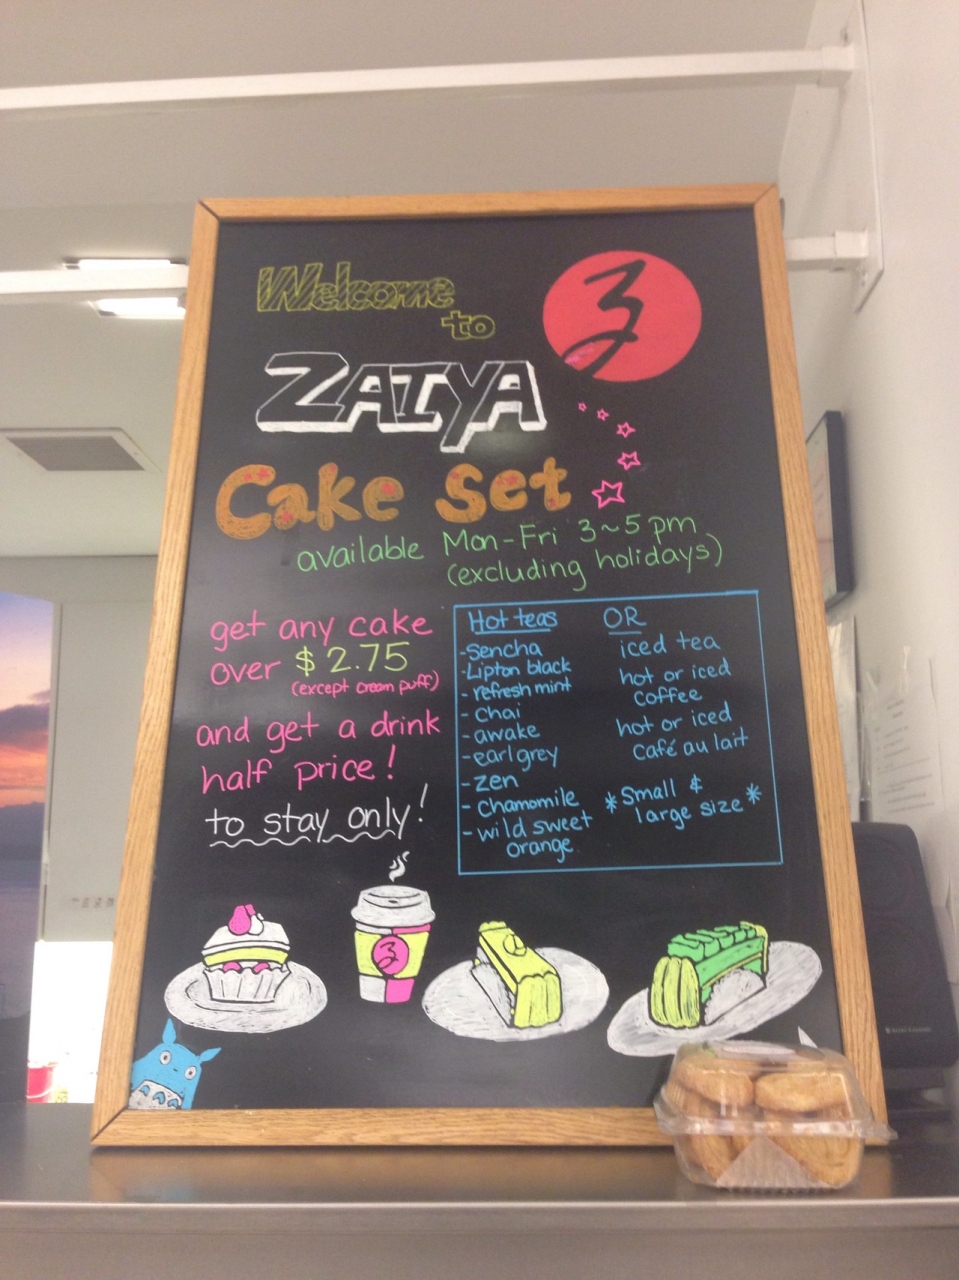 Welcome
to
ZAIYA
Cake Set
available Mon-Fri 3~5 pm
(excluding holidays)
get any cake
over $2.75
(except cream puff)
and get a drink
half price!
to stay only!
Hot teas
-Sencha
-Lipton black
-refresh mint
-Chai
-awake
-earl grey
-zen
-Chamomile
-wild sweet
orange
OR
iced tea
hot or iced
coffee
hot or iced
café au lait
*Small &
large size*